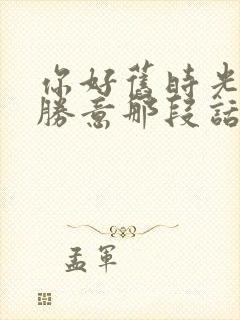 你好舊時光
勝意那段話
孟軍